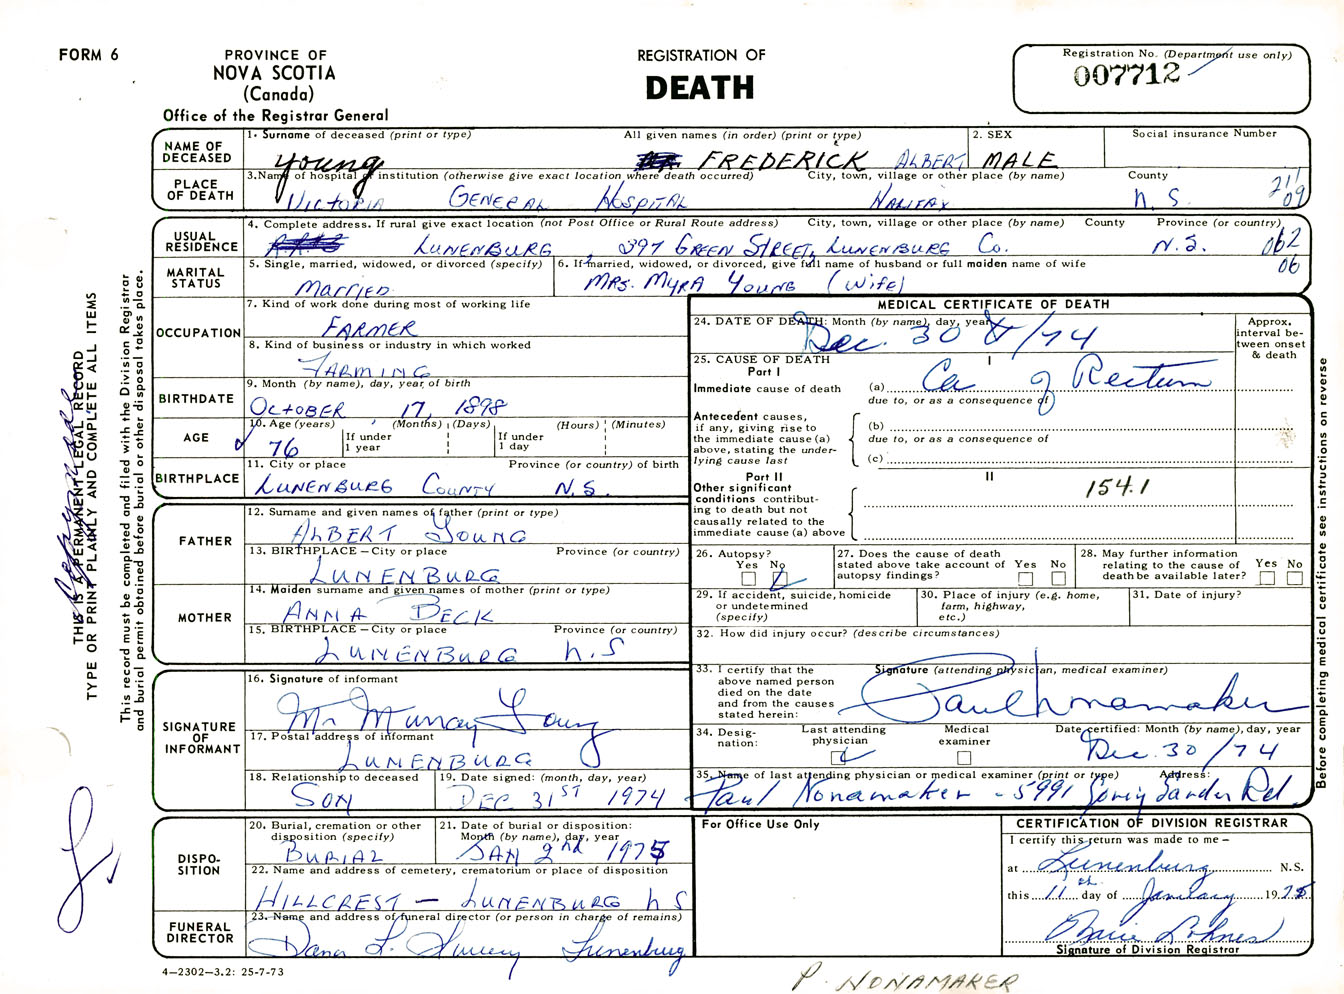 FORM 6
PROVINCE OF
NOVA SCOTIA
(Canada)
Office of the Registrar General
REGISTRATION OF
DEATH
Registration No. (Department use only)
007712
NAME OF DECEASED
1. Surname of deceased (print or type)
All given names (in order) (print or type)
2. SEX
Social insurance Number
Young
FREDERICK ALBERT
MALE
PLACE OF DEATH
3. Name of hospital or institution (otherwise give exact location where death occurred)
City, town, village or other place (by name)
County
VICTORIA GENERAL HOSPITAL
HALIFAX
N.S.
211
09
USUAL RESIDENCE
4. Complete address. If rural give exact location (not Post Office or Rural Route address)
City, town, village or other place (by name)
County
Province (or country)
LUNENBURG 297 GREEN STREET, LUNENBURG Co. N.S.
062
06
MARITAL STATUS
5. Single, married, widowed, or divorced (specify)
MARRIED
6. If married, widowed, or divorced, give full name of husband or full maiden name of wife
MRS. MYRA YOUNG (WIFE)
OCCUPATION
7. Kind of work done during most of working life
FARMER
8. Kind of business or industry in which worked
FARMING
BIRTHDATE
9. Month (by name), day, year of birth
OCTOBER 17, 1898
AGE
10. Age (years)
76
(Months) (Days)
If under 1 year
(Hours) (Minutes)
If under 1 day
BIRTHPLACE
11. City or place
Province (or country) of birth
LUNENBURG COUNTY N.S.
FATHER
12. Surname and given names of father (print or type)
ALBERT YOUNG
13. BIRTHPLACE – City or place
Province (or country)
LUNENBURG
MOTHER
14. Maiden surname and given names of mother (print or type)
ANNA BECK
15. BIRTHPLACE – City or place
Province (or country)
LUNENBURG N.S
SIGNATURE OF INFORMANT
16. Signature of informant
Mr Murray Young
17. Postal address of informant
LUNENBURG
18. Relationship to deceased
SON
19. Date signed: (month, day, year)
DEC 31ST 1974
DISPO-
SITION
20. Burial, cremation or other disposition (specify)
BURIAL
21. Date of burial or disposition: Month (by name), day, year
JAN 2nd 1975
22. Name and address of cemetery, crematorium or place of disposition
HILLCREST – LUNENBURG N S
FUNERAL DIRECTOR
23. Name and address of funeral director (or person in charge of remains)
Dana L. Sweeny Lunenburg
4–2302–3.2: 25-7-73
MEDICAL CERTIFICATE OF DEATH
24. DATE OF DEATH: Month (by name), day, year
Dec. 30 /74
Approx. interval be-
tween onset & death
25. CAUSE OF DEATH
Part I
I
Immediate cause of death
(a) Ca of Rectum
due to, or as a consequence of
Antecedent causes,
if any, giving rise to
the immediate cause (a)
above, stating the under-
lying cause last
(b)
due to, or as a consequence of
(c)
Part II
II
Other significant
conditions contribut-
ing to death but not
causally related to the
immediate cause (a) above
154.1
26. Autopsy?
Yes No
27. Does the cause of death stated above take account of autopsy findings?
Yes No
28. May further information relating to the cause of death be available later?
Yes No
29. If accident, suicide, homicide or undetermined (specify)
30. Place of injury (e.g. home, farm, highway, etc.)
31. Date of injury?
32. How did injury occur? (describe circumstances)
33. I certify that the
above named person
died on the date
and from the causes
stated herein:
Signature (attending physician, medical examiner)
Paul Nonamaker
34. Desig-
nation:
Last attending physician
Medical examiner
Date certified: Month (by name), day, year
Dec. 30/74
35. Name of last attending physician or medical examiner (print or type)
Address:
Paul Nonamaker - 5991 Rd.
For Office Use Only
CERTIFICATION OF DIVISION REGISTRAR
I certify this return was made to me –
at Lunenburg N.S.
this 11th day of January 1975
Lohnes
Signature of Division Registrar
P. NONAMAKER
THIS IS A PERMANENT LEGAL RECORD
TYPE OR PRINT PLAINLY AND COMPLETE ALL ITEMS
This record must be completed and filed with the Division Registrar
and burial permit obtained before burial or other disposal takes place.
Before completing medical certificate see instructions on reverse